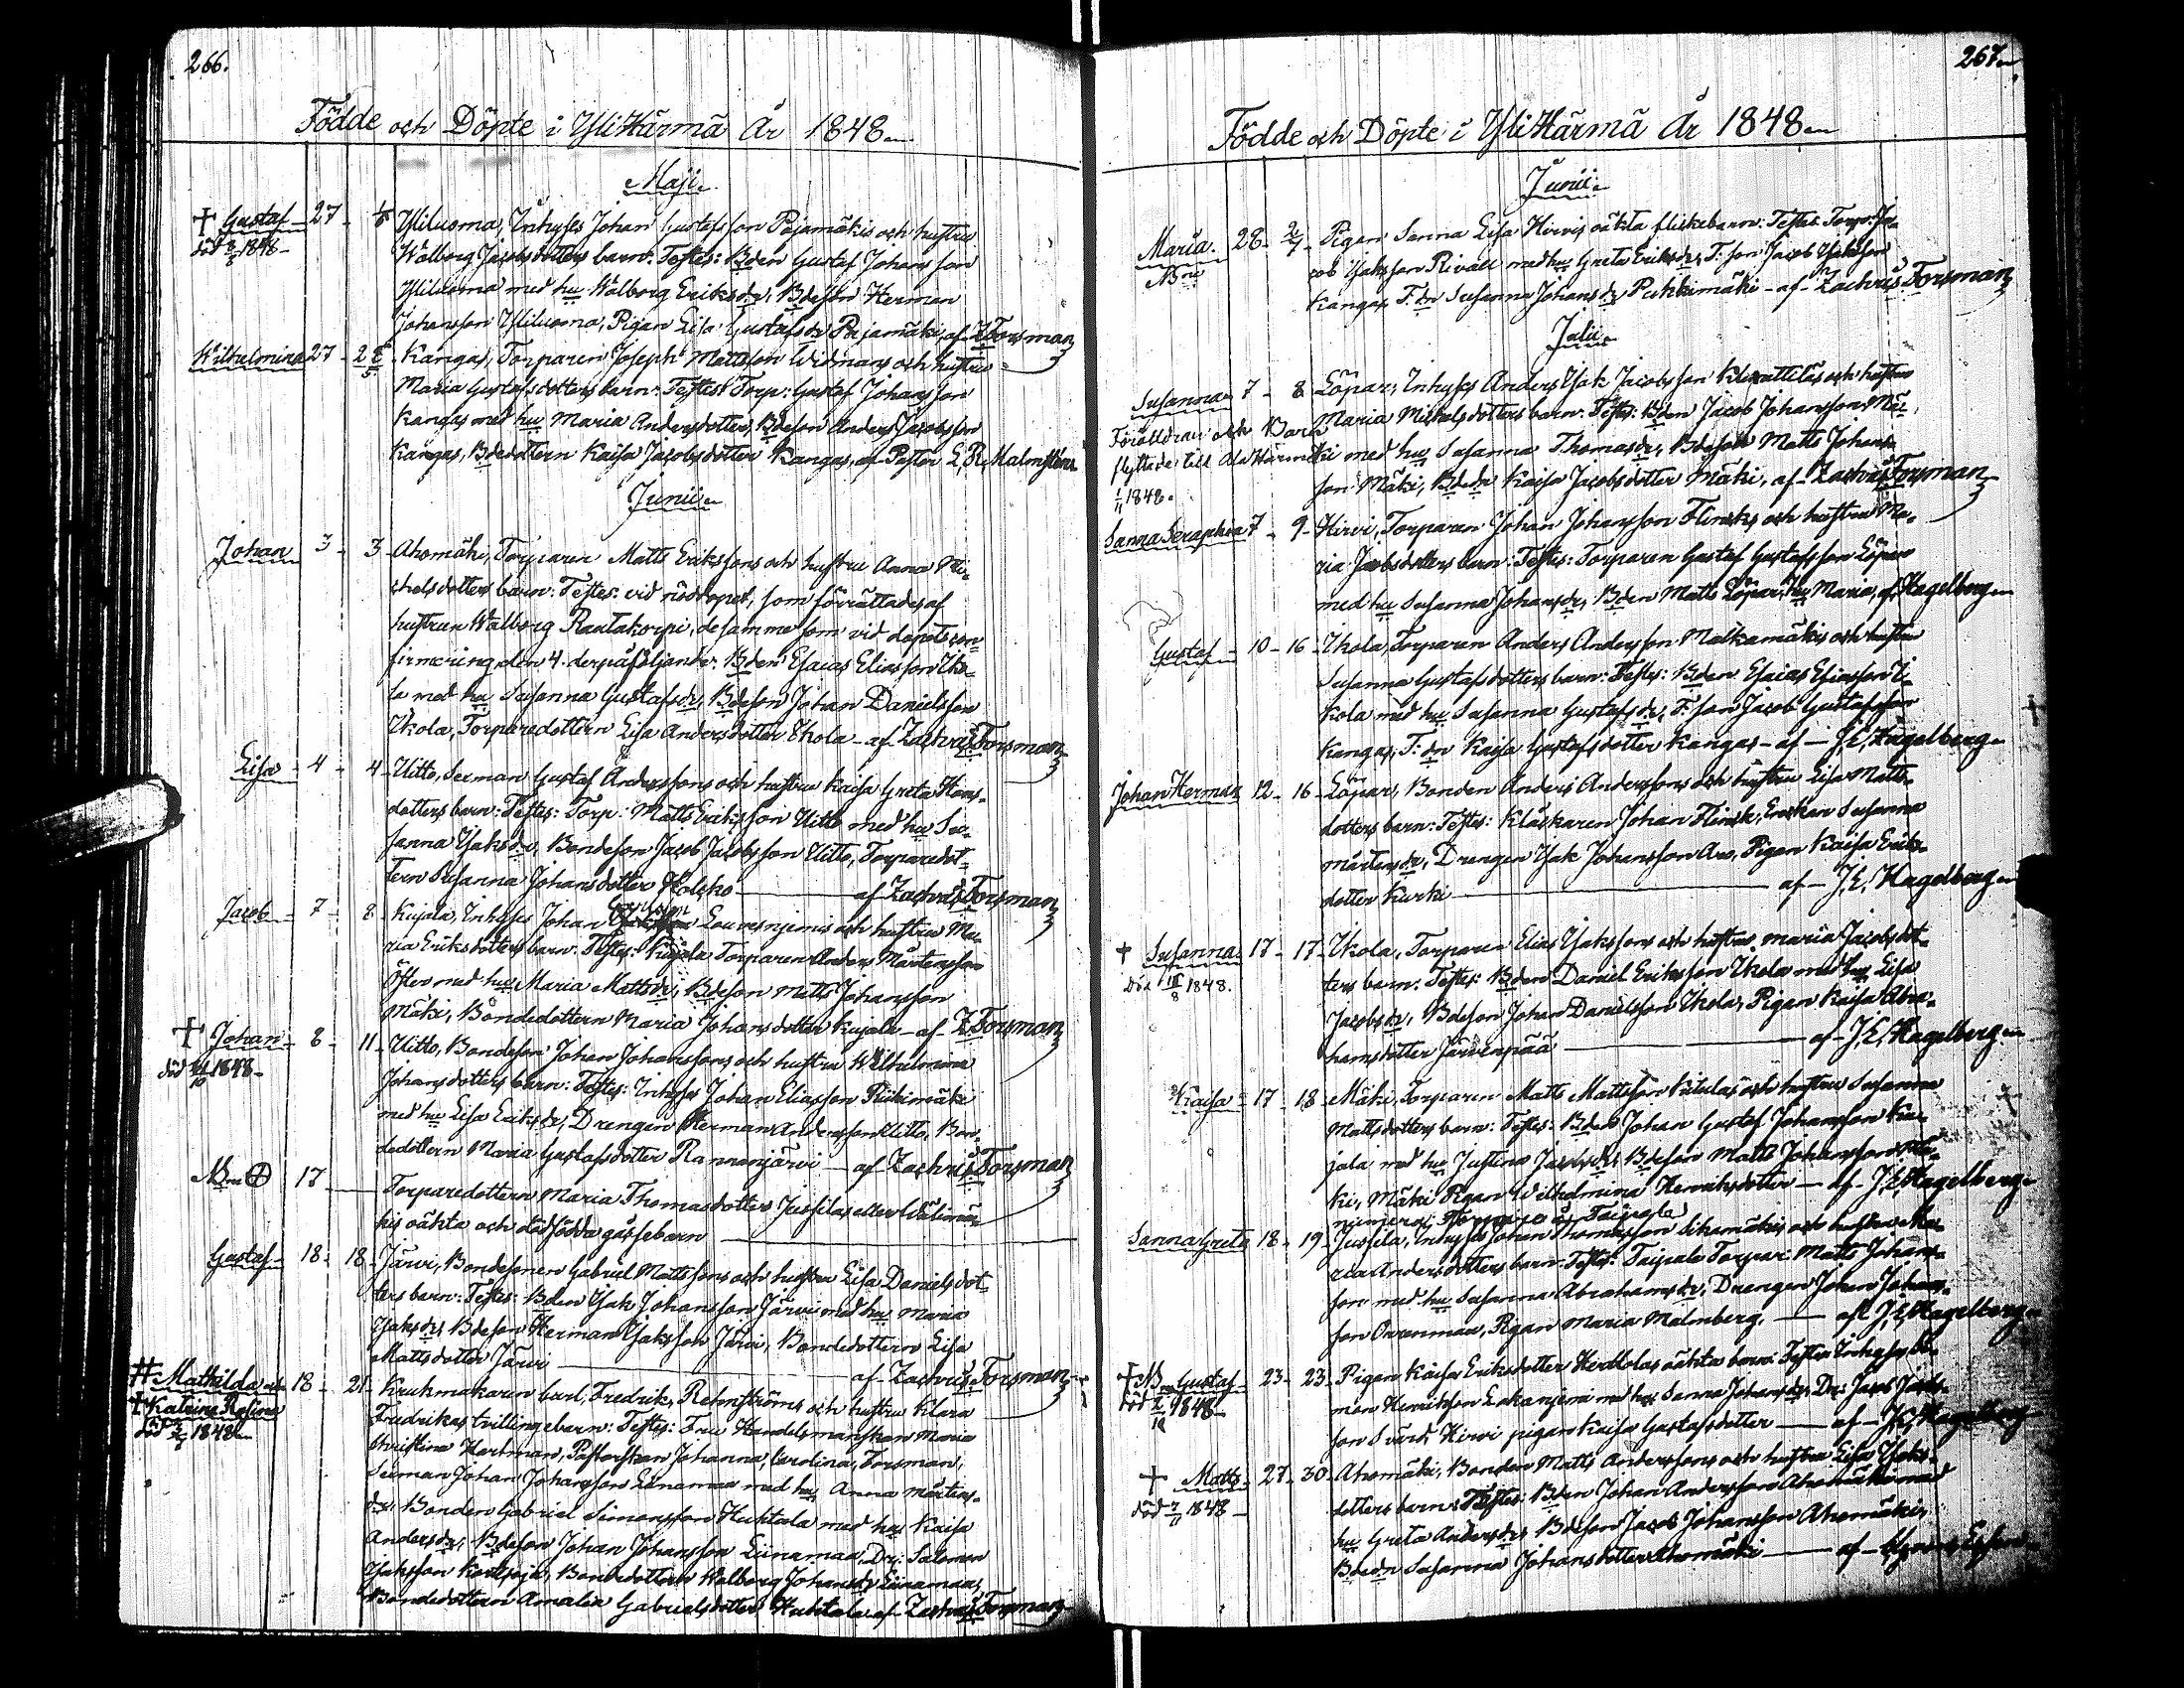 266.
Födde och Döpte i YliHärmä År 1848
Maji
† Gustaf 27 Yliluoma, Inhyses Johan Gustafsson Pajamäkis och hustru
död 1848 Walborg Jacobsdotters barn: Testes: Bden Gustaf Johansson
Yliluoma med hu Walborg Eriksdr, Bdeson Herman
Johansson Yliluoma, Pigan Lisa Gustafsdr Pajamäki, af Z Forsman
Wilhelmina 27 28/5 Kangas, Torparen Joseph Mattsson Widmans och hustru
Maria Gustafsdotters barn: Testes: Torp: Gustaf Johansson
Kangas med hu Maria Andersdotter, Bdeson Anders Jacobsson
Kangas, Bdedottern Kaisa Jacobsdotter Kangas, af Pastor Malmstén
Junii
Johan 3 3 Ahomäki, Torparen Matts Erikssons och hustru Anna Mi-
chelsdotters barn: Testes: vid nöddopet, som förrättades af
hustrun Walborg Rautakorpi, desamme som vid dopets con-
firmering den 4. derpåföljande: Bden Esaias Eliasson Iko-
la med hu Susanna Gustafsdr, Bdeson Johan Danielsson
Ikola, Torparedottern Lisa Andersdotter Ikola af Zachris Forsman
Lisa 4 4 Uitto, Seeman Gustaf Anderssons och hustru Kaisa Greta Hans-
dotters barn: Testes: Torp: Matts Eriksson Uitto med hu Su-
sanna Isaksdr, Bondeson Jacob Jacobsson Uitto, Torparedot-
tern Susanna Johansdotter af Zachris Forsman
Jacob 7 8 Kujala, Inhyses Johan Louvesniemis och hustru Ma-
ria Eriksdotters barn: Testes: Kujala Torparen Anders Mårtensson
Öster med hu Maria Mattsdr, Bdeson Matts Johansson
Mäki, Bondedottern Maria Johansdotter Kujala af Z. Forsman
† Johan 8 11 Uitto, Bondeson Johan Johanssons och hustru Wilhelmina
död 1848 Johansdotters barn: Testes: Inhyses Johan Eliasson Riihimäki
med hu Lisa Eriksdr, Drengen Herman Andersson Uitto, Bon-
dedottern Maria Gustafsdotter Rannanjärvi af Zachris Forsman
17 Torparedottern Maria Thomasdotter Jussilas eller Wälimä-
kis oäkta och dödfödda gossebarn
Gustaf 18 18 Järvi, Bondesonen Gabriel Mattssons och hustru Lisa Danielsdot-
ters barn: Testes: Bden Isak Johansson Järvi med hu Maria
Isaksdr, Bdeson Herman Isaksson Järvi, Bondedottern Lisa
Mattsdotter Järvi af Zachris Forsman
Mathilda och 18 21 Krukmakaren Carl Fredrik Rehnströms och hustru Klara
† Katrina Rosina Fredrikas tvillingebarn: Testes: Fru Handelsmanskan Maria
död 1848 Christina Hartman, Pastorskan Johanna Carolina Forsman,
Seeman Johan Johansson Liinamaa med hu Anna Mårtens-
dr, Bonden Gabriel Simonsson Huhtala med hu Kaisa
Andersdr, Bdeson Johan Johansson Liinamaa, Dr: Salomon
Isaksson, Bondedottern Walborg Johansdr Liinamaa,
Bondedottern Amalia Gabrielsdotter Huhtala af Zachris Forsman
267
Födde och Döpte i YliHärmä År 1848
Junii
Maria 28 2/7 Pigan Sanna Lisa Hirvis oäkta flickebarn: Testes: Torp: Ja-
cob Isaksson Rivall med hu Greta Eriksdr, T: son Jacob Isaksson
Kangas, T. dr Susanna Johansdr Puhkimäki af Zachris Forsman
Julii
Susanna 7 8 Löpar, Inhyses Anders Isak Jacobsson och hustru
Föräldrar och Barn Maria Michelsdotters barn: Testes: Bden Jacob Johansson Mä-
flyttade till Ala Härmä ki med hu Susanna Thomasdr, Bdeson Matts Johans-
1848. son Mäki, Bdedr Kaisa Jacobsdotter Mäki, af Zachris Forsman
Sanna Seraphina 7 9 Hirvi, Torparen Johan Johansson Flincks och hustru Ma-
ria Jacobsdotters barn: Testes: Torparen Gustaf Gustafsson Löpar
med hu Susanna Johansdr, Bden Matts Löpar, hu Maria, af Hagelberg
Gustaf 10 16 Ikola, Torparen Anders Andersson Malkamäkis och hustru
Susanna Gustafsdotters barn: Testes: Bden Esaias Eliasson I-
kola med hu Susanna Gustafsdr, T: son Jacob Gustafsson
Kangas, T: dr Kaisa Gustafsdotter Kangas af J. E. Hagelberg
Johan Herman 12 16 Löpar, Bonden Anders Anderssons och hustru Lisa Matts-
dotters barn: Testes: Klåckaren Johan Flinck, Enckan Susanna
Mårtensdr, Drengen Isak Johansson Aro, Pigan Kaisa Eriks-
dotter Kurki af J. E. Hagelberg
† Susanna 17 17 Ikola, Torparen Elias Isakssons och hustru Maria Jacobsdot-
död 1848. ters barn: Testes: Bden Daniel Eriksson Ikola med hu Lisa
Jacobsdr, Bdeson Johan Danielsson Ikola, Pigan Kaisa Abra-
hamsdotter Järvenpää af J. E. Hagelberg
Kaisa 17 18 Mäki, Torparen Matts Mattsson och hustru Susanna
Mattsdotters barn: Testes: Bden Johan Gustaf Johansson Ku-
jala med hu Justina Jacobsdr, Bdeson Matts Johansson Mä-
ki, Mäki Pigan Wilhelmina Henriksdotter af J. E. Hagelberg
Sanna Greta 18 19 Jussila, Inhyses Johan Thomasson Sikamäkis och hustru Ma-
ria Andersdotters barn: Testes: Taipale Torpar: Matts Johans-
son med hu Susanna Abrahamsdr, Drengen Johan Johans-
son, Pigan Maria Malmberg, af J. E. Hagelberg
† Gustaf 23 23 Pigan Kaisa Eriksdotter oäkta barn: Testes: Inhyses
död 1848 Henriksson med hu Sanna Johansdr, Dr: Jacob
son Svärd, Hirvi pigan Kaisa Gustafsdotter af J. E. Hagelberg
† Matts 27 30 Ahomäki, Bonden Matts Anderssons och hustru Lisa Isaks-
död 1848 dotters barn: Testes: Bden Johan Andersson Ahomäki med
hu Greta Andersdr, Bdeson Jacob Johansson Ahomäki,
Bdedr Susanna Johansdotter Ahomäki af